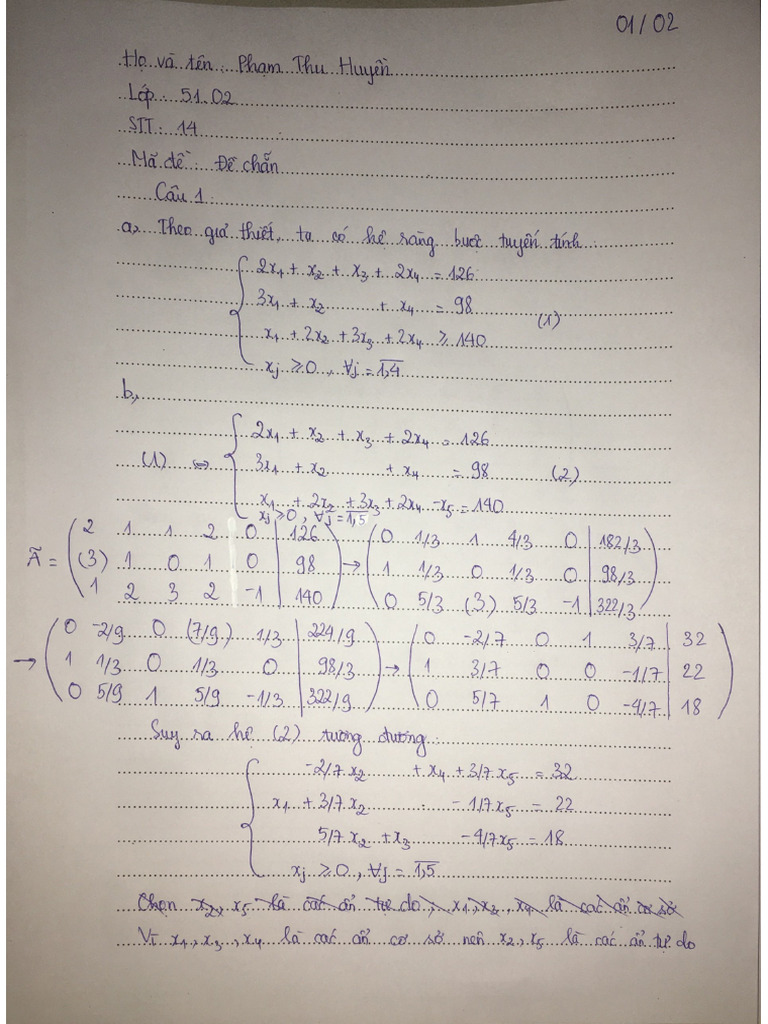 01/02
Họ và tên: Phạm Thu Huyền
Lớp: 51.02
STT: 14
Mã đề: Đề chẵn
Câu 1:
a, Theo giả thiết, ta có hệ ràng buộc tuyến tính:
2x₁ + x₂ + x₃ + 2x₄ = 126
3x₁ + x₂ + x₄ = 98
(1)
x₁ + 2x₂ + 3x₃ + 2x₄ ≥ 140
xⱼ ≥ 0, ∀j = 1,4
b,
2x₁ + x₂ + x₃ + 2x₄ = 126
(1) ⇔ 3x₁ + x₂ + x₄ = 98 (2)
x₁ + 2x₂ + 3x₃ + 2x₄ - x₅ = 140
xⱼ ≥ 0, ∀j = 1,5
2 1 1 2 0 | 126 0 1/3 1 4/3 0 | 182/3
Ã = (3) 1 0 1 0 | 98 → 1 1/3 0 1/3 0 | 98/3
1 2 3 2 -1 | 140 0 5/3 (3) 5/3 -1 | 322/3
0 -2/9 0 (7/9) 1/3 | 224/9 0 -2/7 0 1 3/7 | 32
→ 1 1/3 0 1/3 0 | 98/3 → 1 3/7 0 0 -1/7 | 22
0 5/9 1 5/9 -1/3 | 322/9 0 5/7 1 0 -4/7 | 18
Suy ra hệ (2) tương đương:
-2/7x₂ + x₄ + 3/7x₅ = 32
x₁ + 3/7x₂ - 1/7x₅ = 22
5/7x₂ + x₃ - 4/7x₅ = 18
xⱼ ≥ 0, ∀j = 1,5
Chọn x₂, x₅ là các ẩn tự do, x₁, x₃, x₄ là các ẩn cơ sở
Vì x₁, x₃, x₄ là các ẩn cơ sở nên x₂, x₅ là các ẩn tự do